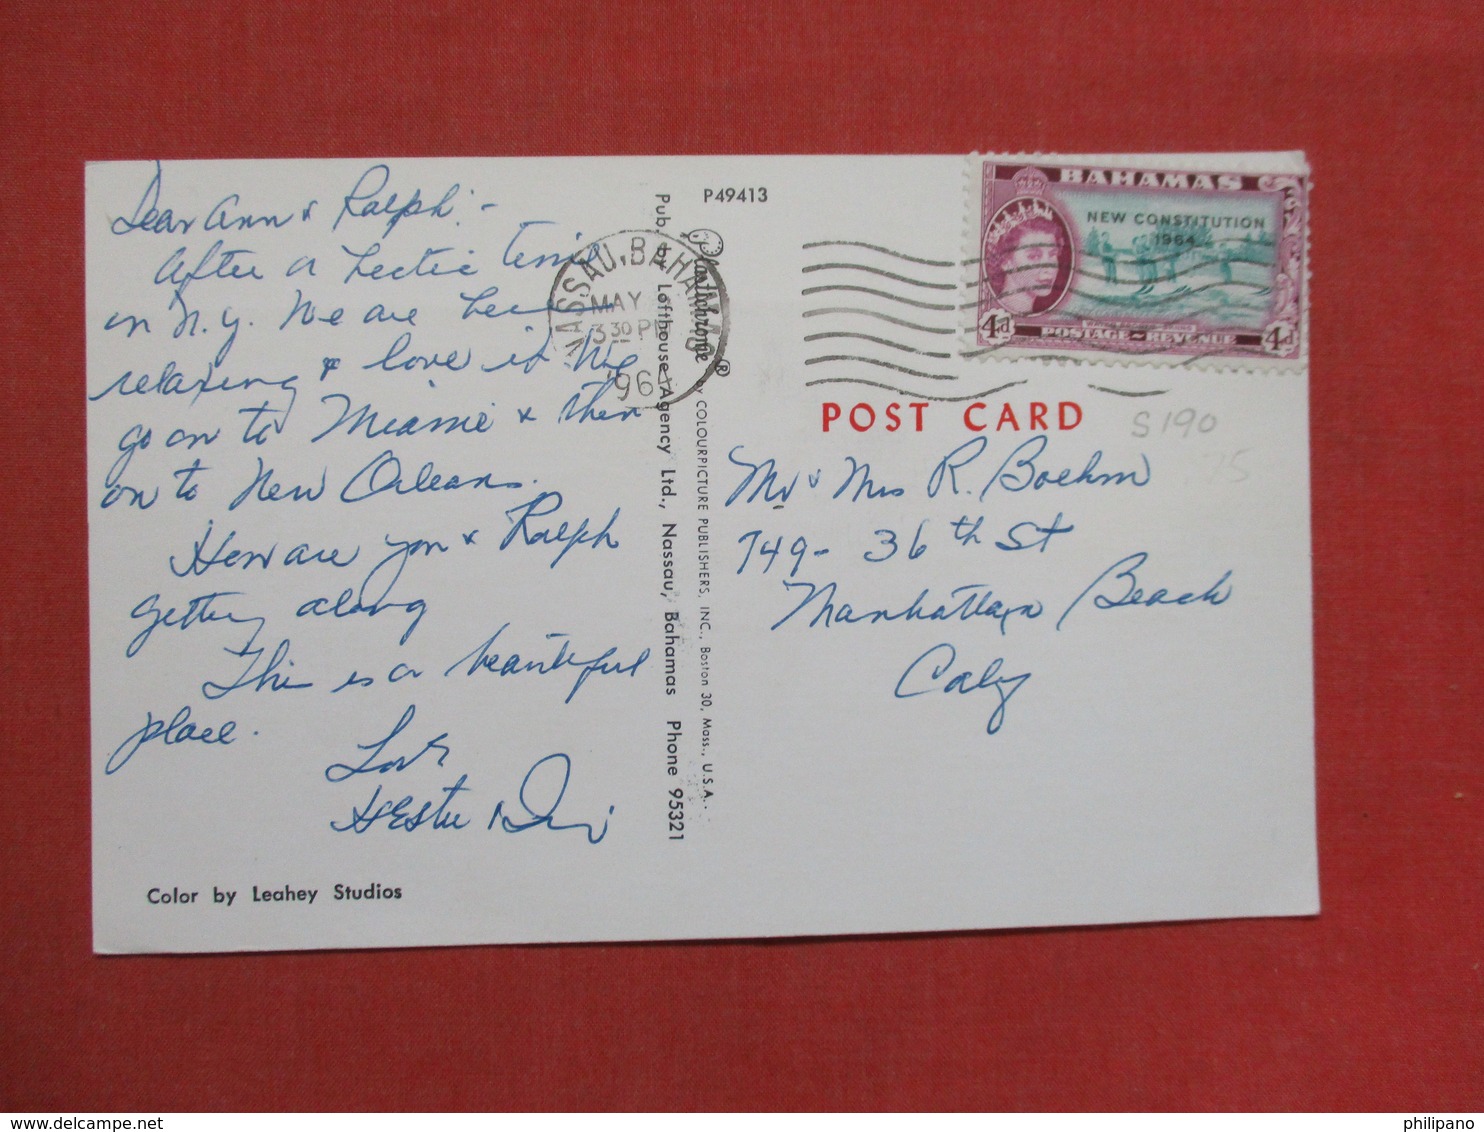 Dear Ann & Ralph: -
After a hectic time
in N.Y. We are here
relaxing & love it. We
go on to Miami & then
on to New Orleans.
How are you & Ralph
getting along
This is a beautiful
place.
Love
Color by Leahey Studios
Pub. by Lofthouse Agency Ltd., Nassau, Bahamas Phone 95321
Plastichrome ® by COLOURPICTURE PUBLISHERS, INC., Boston 30, Mass., U.S.A.
P49413
NASSAU, BAHAMAS
MAY
3 30 PM
1964
BAHAMAS
NEW CONSTITUTION
1964
4d POSTAGE - REVENUE 4d
POST CARD
S190
75
Mr & Mrs R. Boehm
749 - 36th St
Manhattan Beach
Calif
philipano
delcampe.net